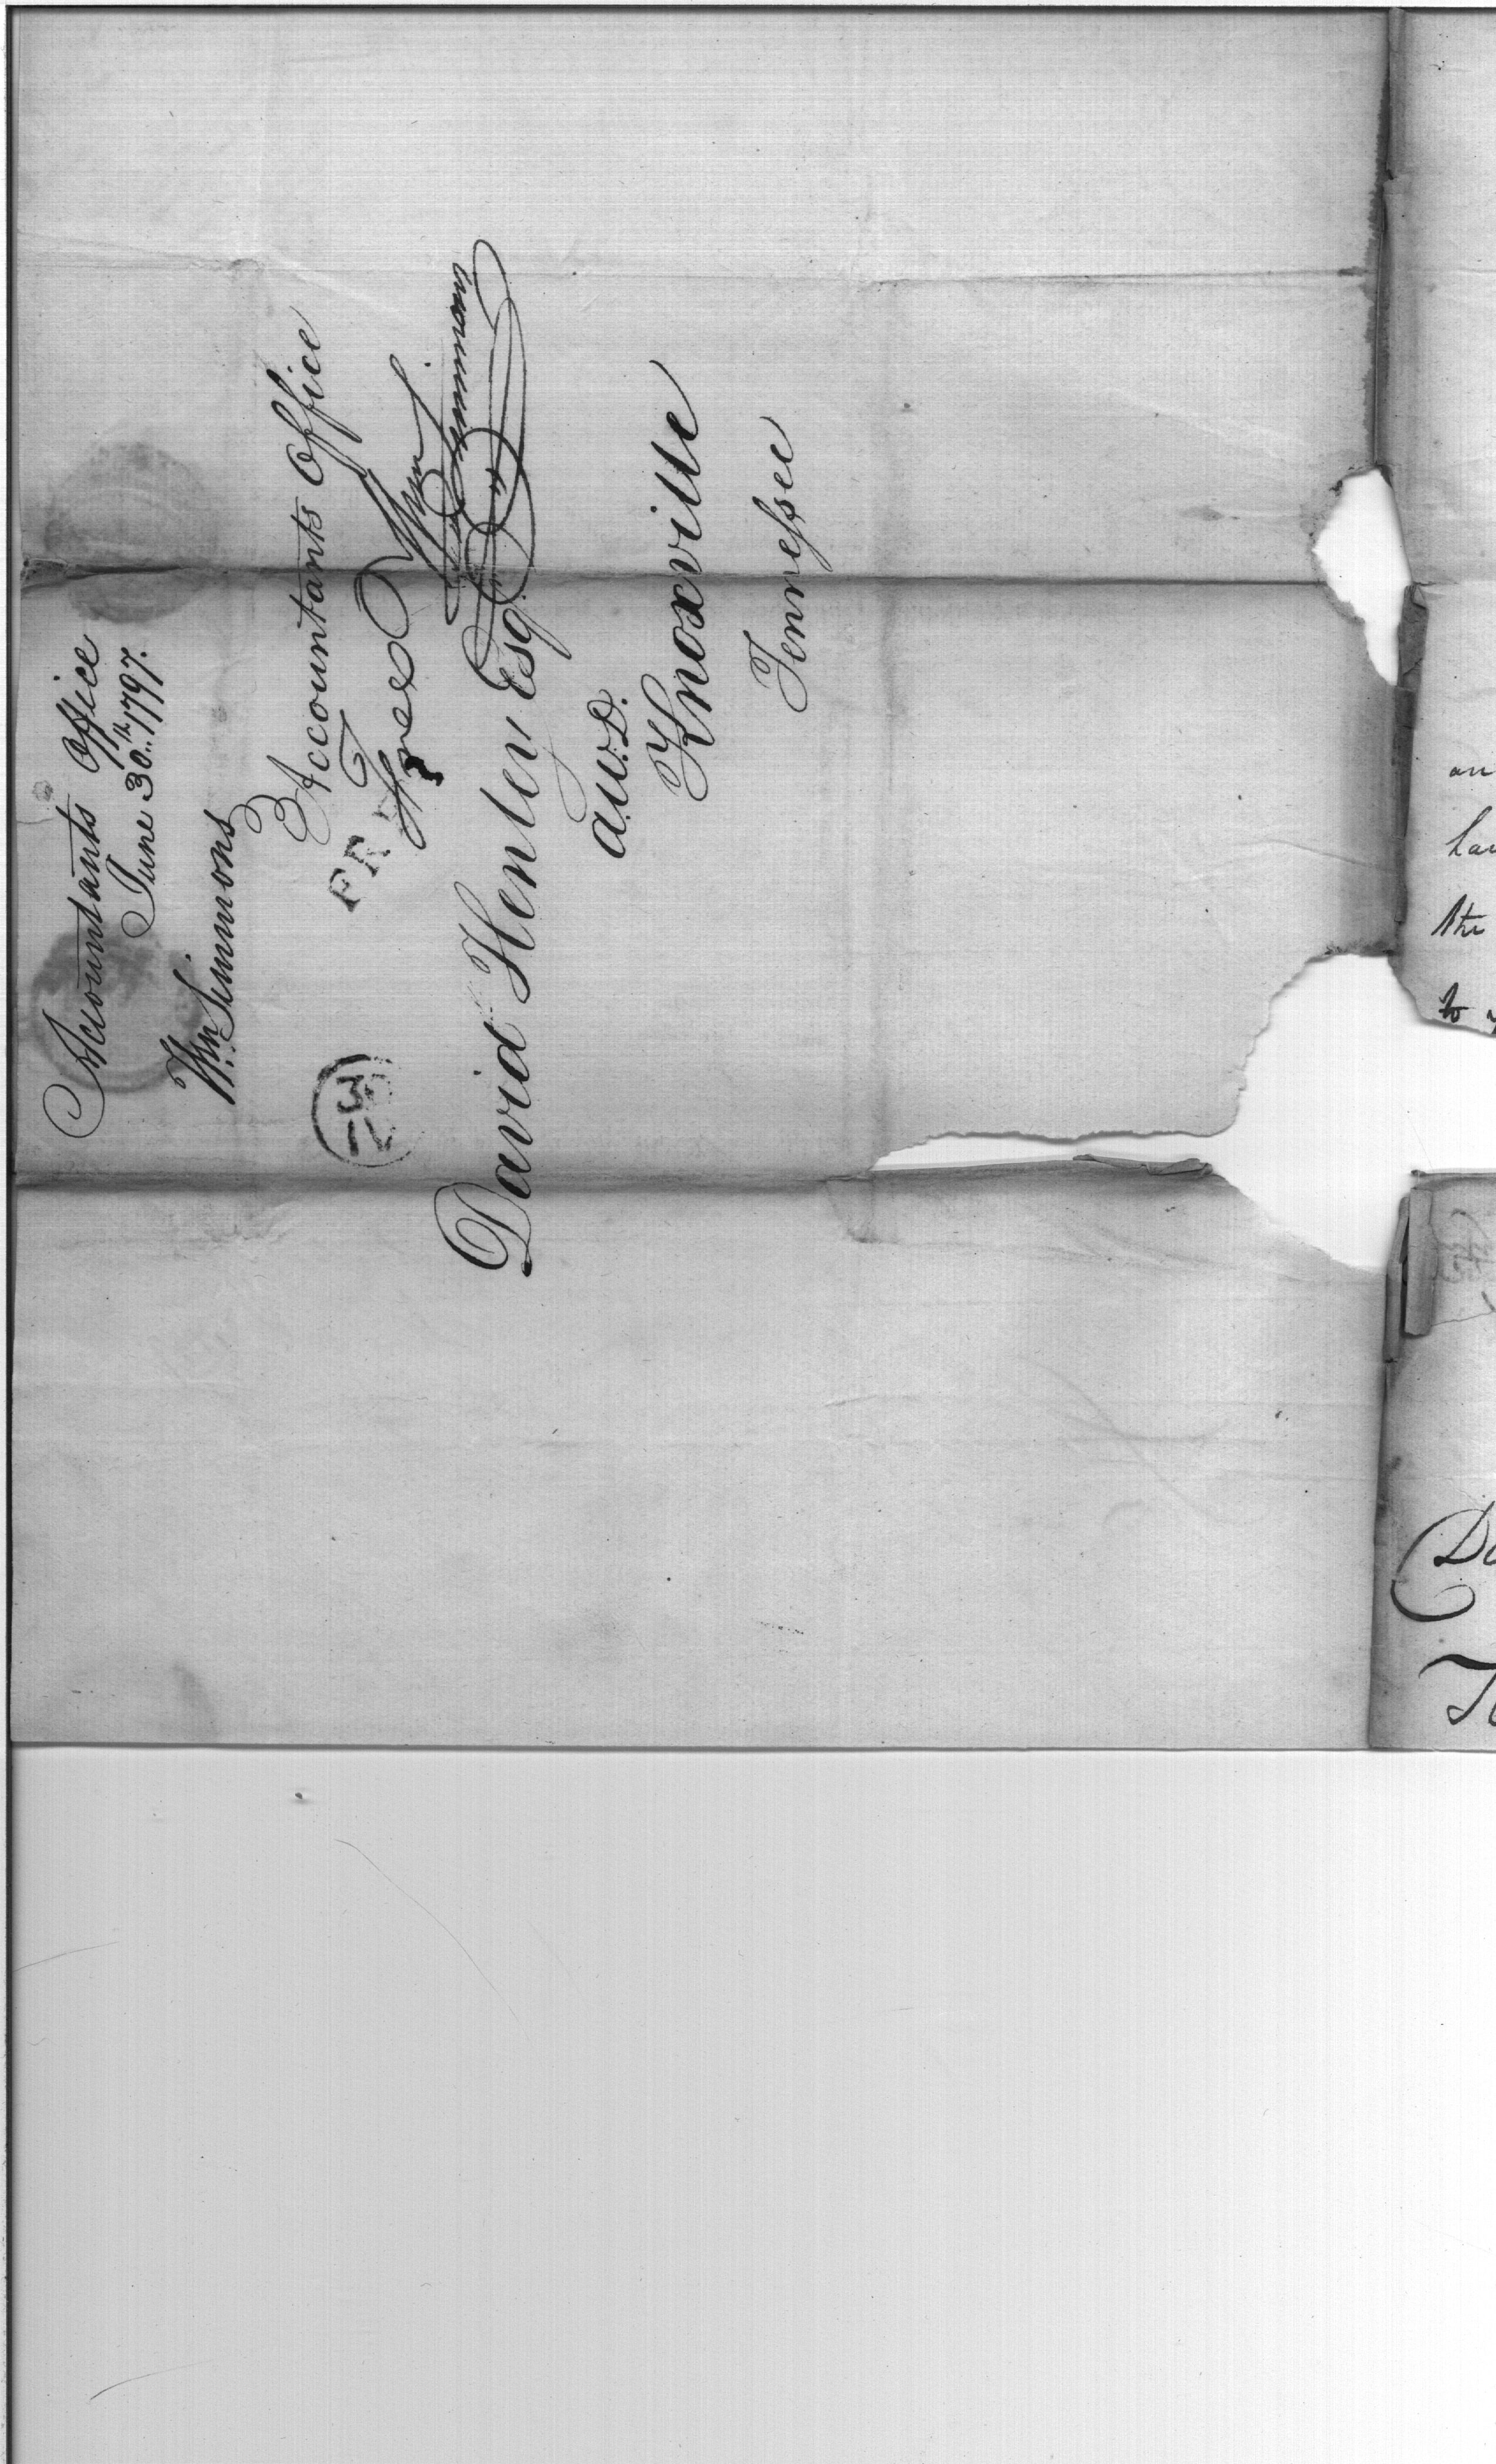 Accountants Office
June 30th 1797.
Wm Simmons
Accountants Office
Free
Wm Simmons
FR
30
David Henley Esqr.
A.W.D.
Knoxville
Tennessee
an
the
to